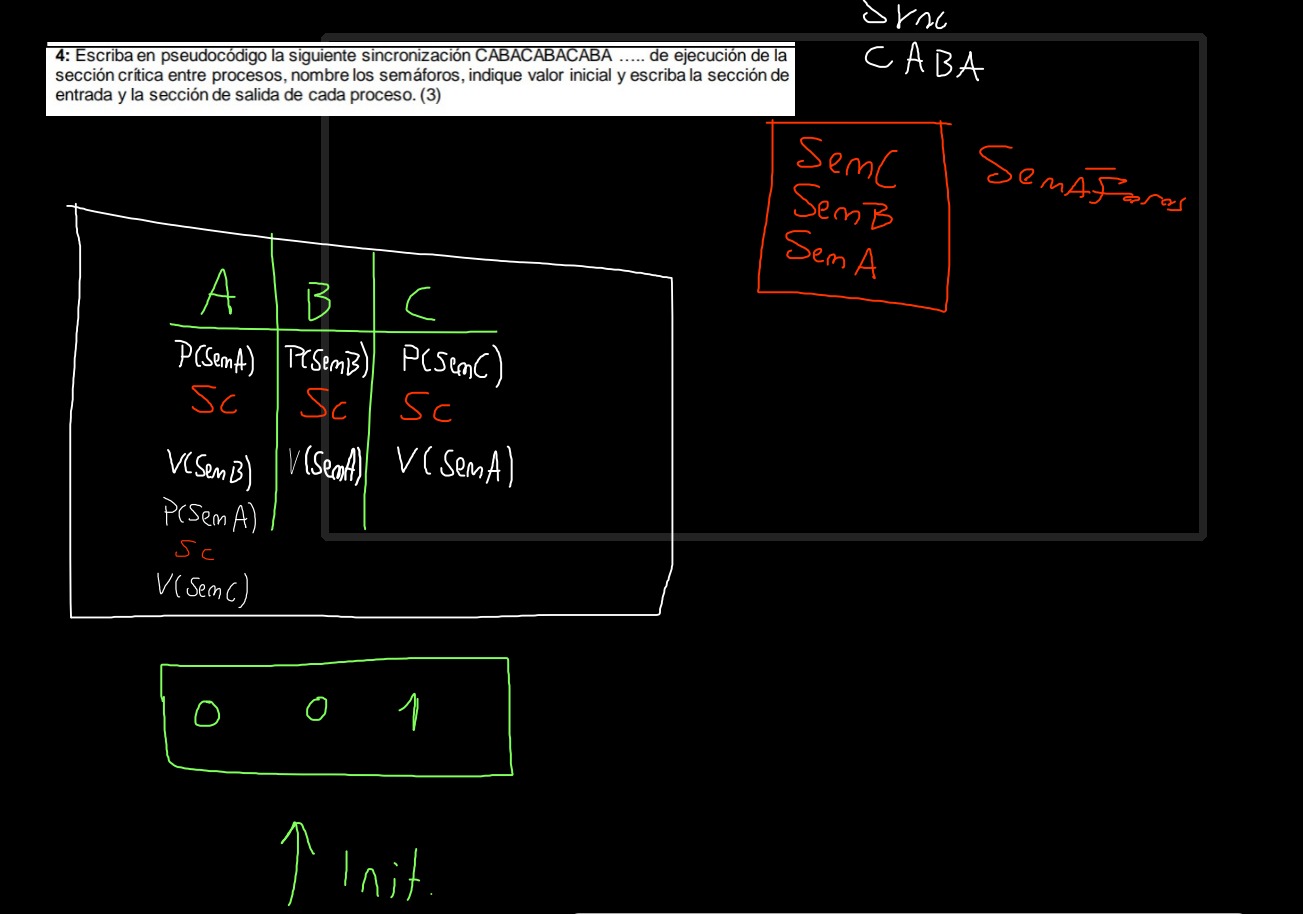 Sync
CABA
4: Escriba en pseudocódigo la siguiente sincronización CABACABACABA ….. de ejecución de la
sección crítica entre procesos, nombre los semáforos, indique valor inicial y escriba la sección de
entrada y la sección de salida de cada proceso. (3)
SemC
SemB
SemA
SemAForos
A B C
P(SemA) P(SemB) P(SemC)
Sc Sc Sc
V(SemB) V(SemA) V(SemA)
P(SemA)
Sc
V(SemC)
0 0 1
Init.